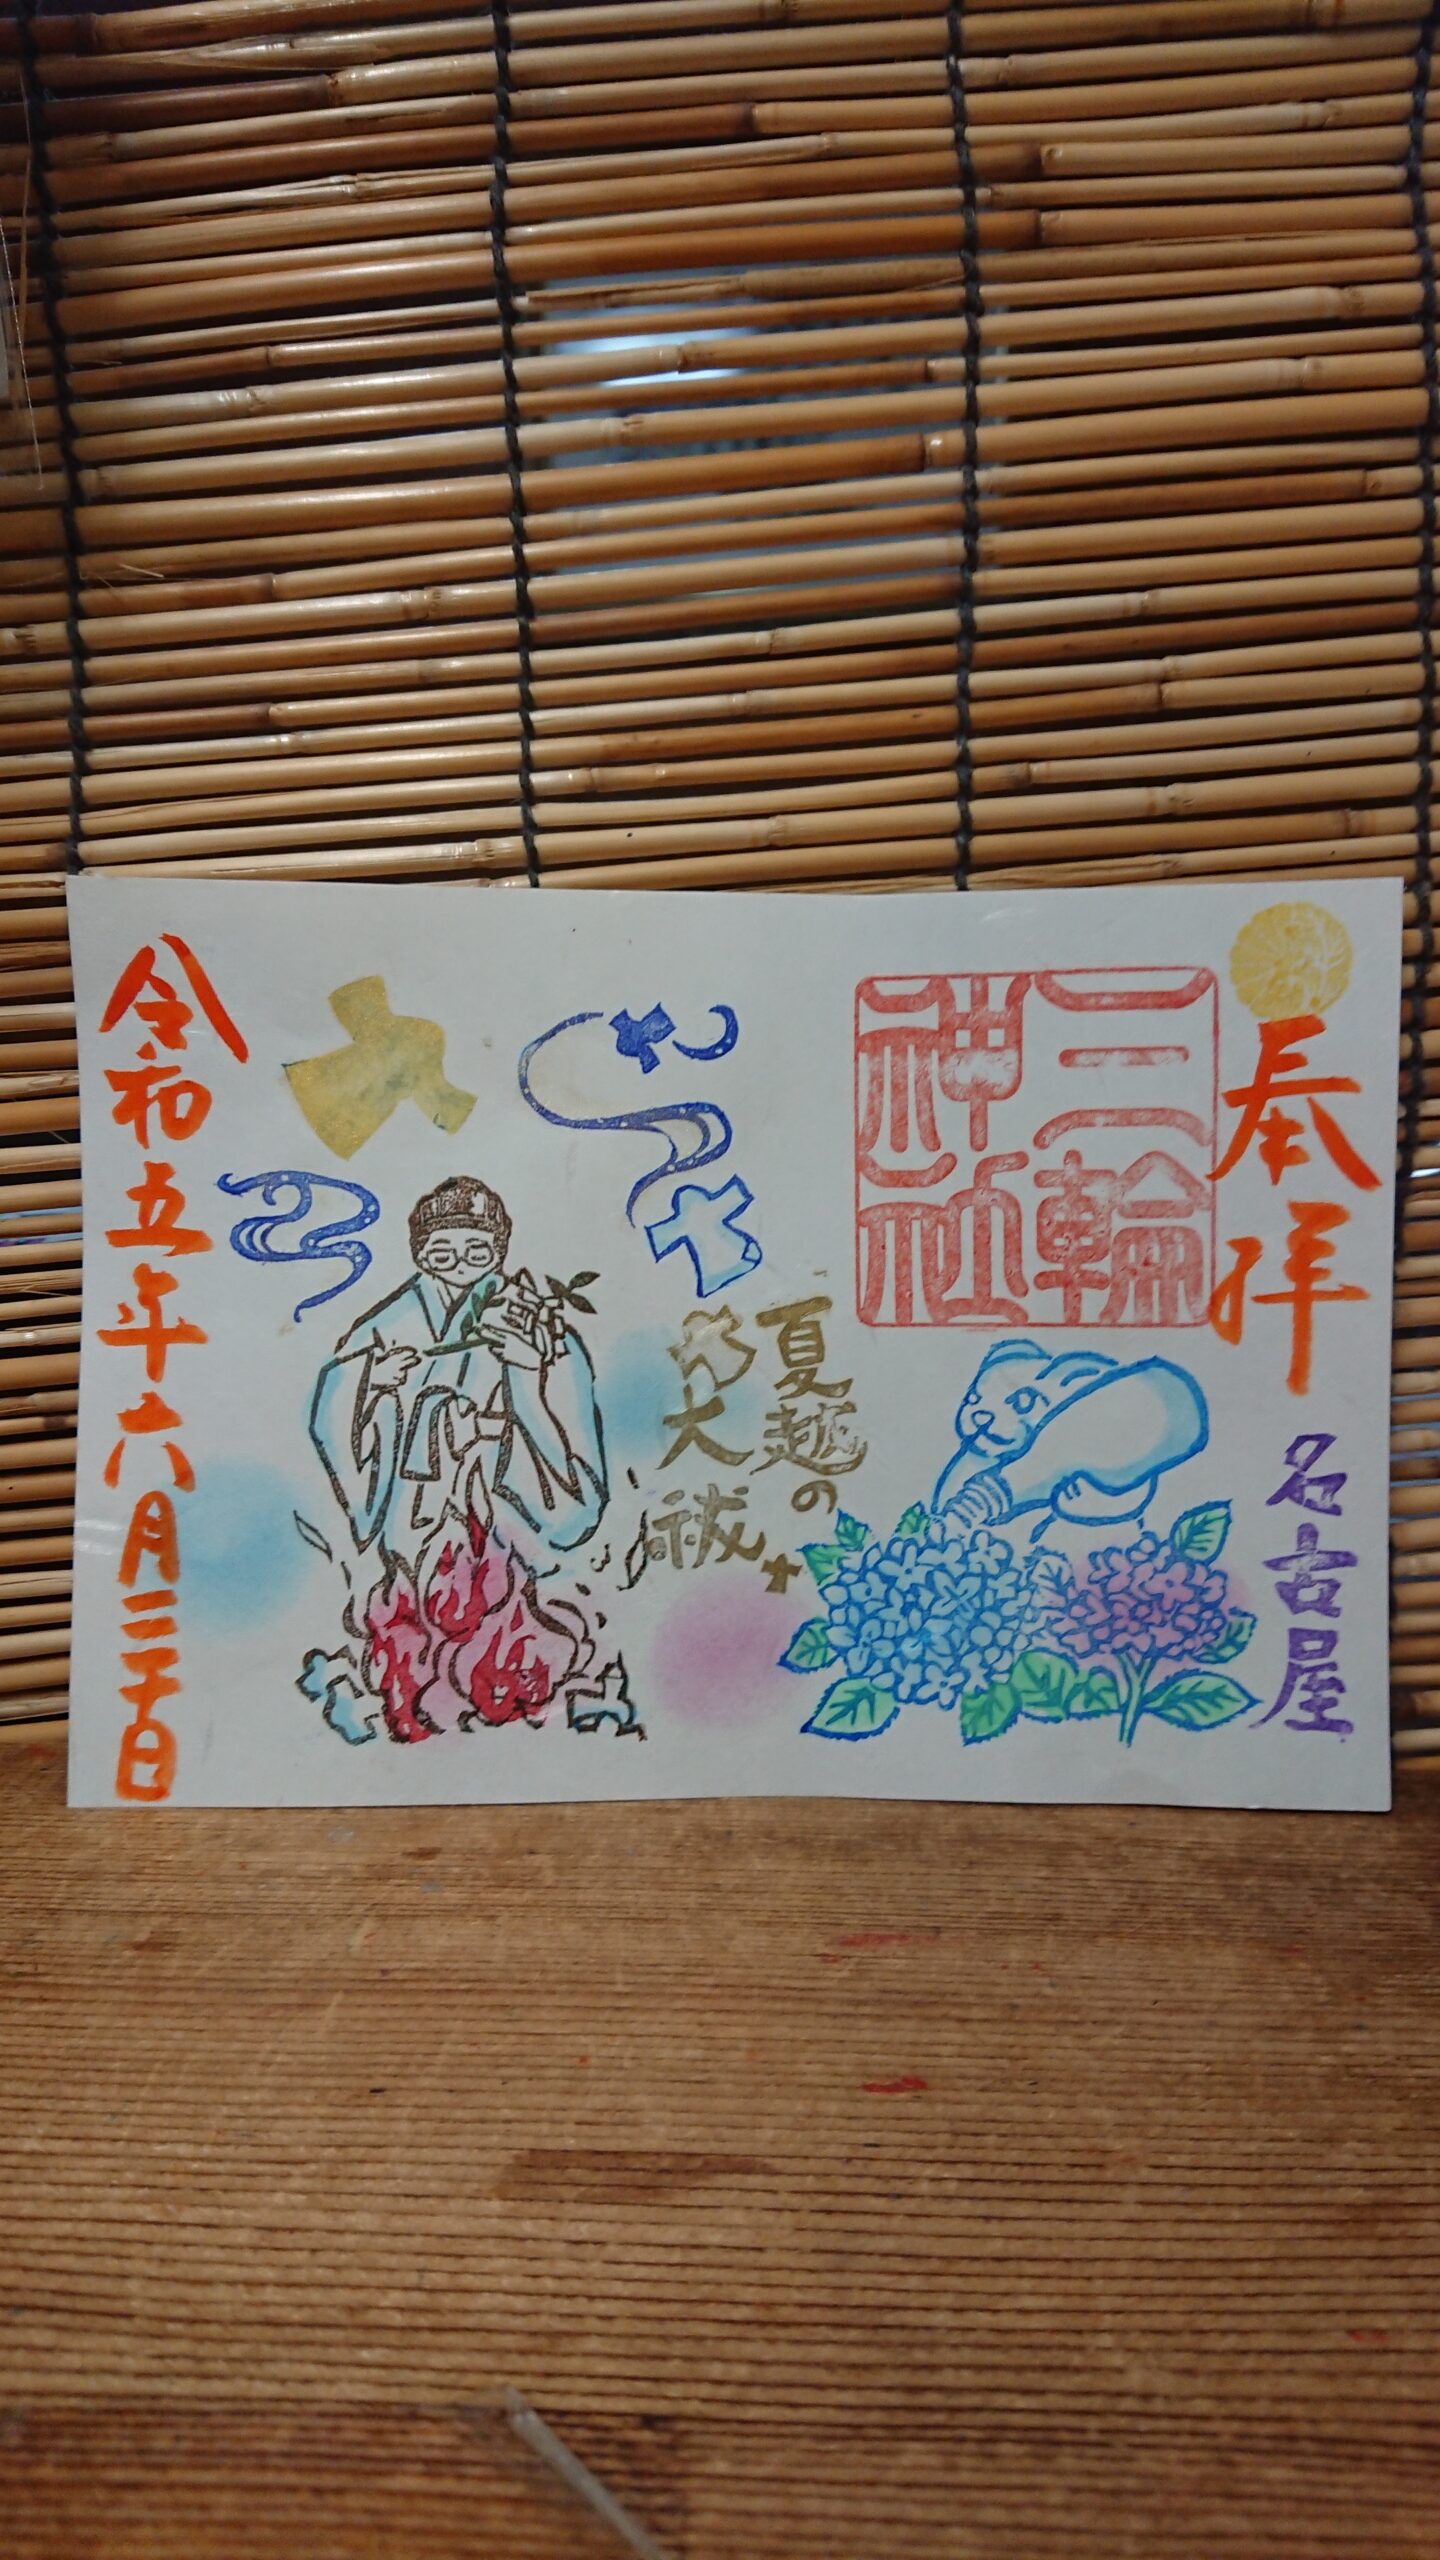 奉拝
名古屋
三輪
神社
夏越の
大祓
令和五年六月三十日